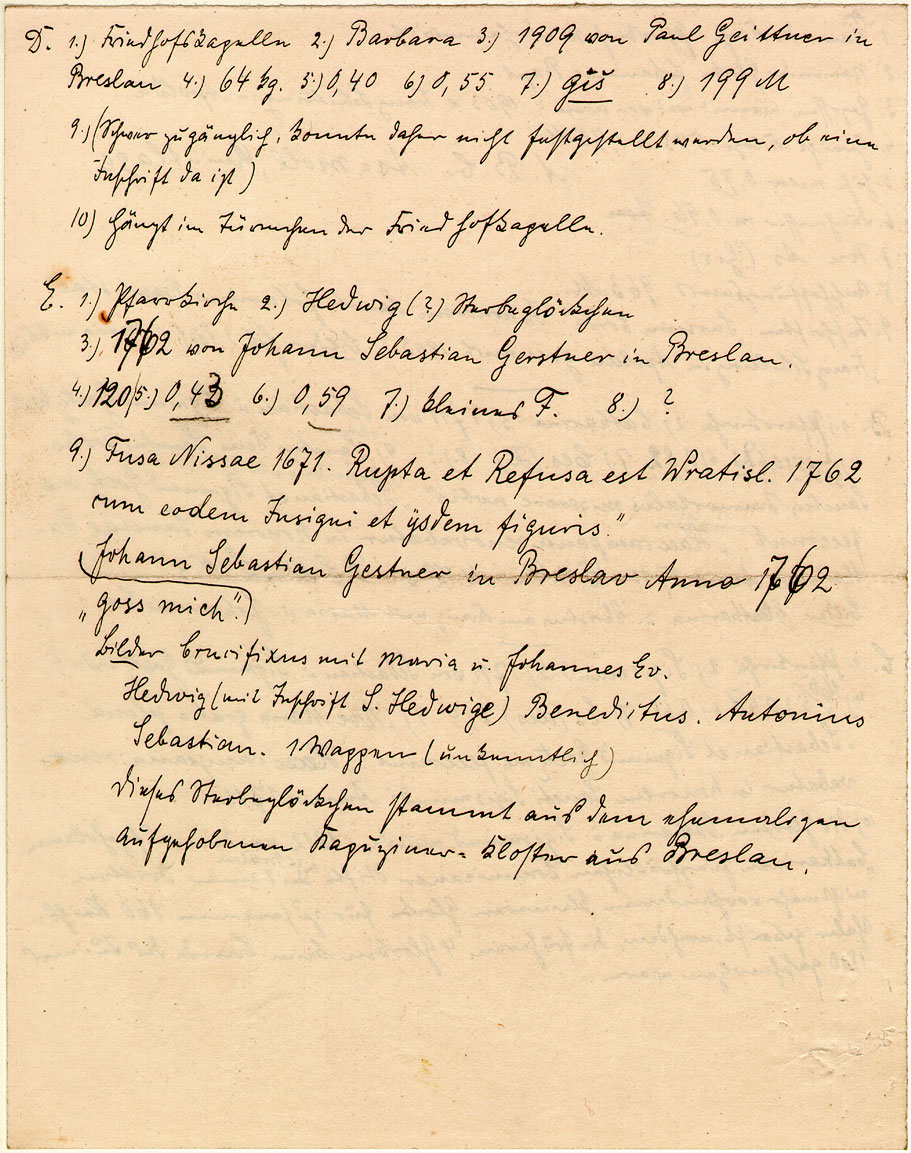 D. 1.) Friedhofskapelle 2.) Barbara 3.) 1909 von Paul Geittner in
Breslau 4.) 64 kg. 5.) 0,40 6.) 0,55 7.) gis 8.) 199 M
9.) (Schwer zugänglich, konnte daher nicht festgestellt werden, ob eine
Inschrift da ist)
10) Hängt im Türmchen der Friedhofkapelle.
E. 1.) Pfarrkirche 2.) Hedwig (?) Sterbeglöckchen
3.) 1762 von Johann Sebastian Gerstner in Breslau.
4.) 120 5.) 0,43 6.) 0,59 7.) kleines F. 8.) ?
9.) Fusa Nissae 1671. Rupta et Refusa est Wratisl. 1762
cum eodem Insigni et ijsdem figuris."
(Johann Sebastian Gestner in Breslav Anno 1762
"goss mich".)
Bilder Crucifixus mit Maria u. Johannes Ev.
Hedwig (mit Inschrift S. Hedwige) Benedictus. Antonius
Sebastian. 1 Wappen (unkenntlich)
Dieses Sterbeglöckchen stammt aus dem ehemaligen
aufgehobenen Kapuziner-Kloster aus Breslau.